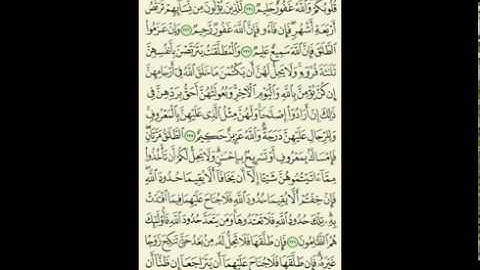 قُلُوبُكُمْ وَٱللَّهُ غَفُورٌ حَلِيمٌ ٢٢٥ لِّلَّذِينَ يُؤْلُونَ مِن نِّسَآئِهِمْ تَرَبُّصُ
أَرْبَعَةِ أَشْهُرٍ فَإِن فَآءُو فَإِنَّ ٱللَّهَ غَفُورٌ رَّحِيمٌ ٢٢٦ وَإِنْ عَزَمُوا۟
ٱلطَّلَٰقَ فَإِنَّ ٱللَّهَ سَمِيعٌ عَلِيمٌ ٢٢٧ وَٱلْمُطَلَّقَٰتُ يَتَرَبَّصْنَ بِأَنفُسِهِنَّ
ثَلَٰثَةَ قُرُوٓءٍ وَلَا يَحِلُّ لَهُنَّ أَن يَكْتُمْنَ مَا خَلَقَ ٱللَّهُ فِىٓ أَرْحَامِهِنَّ
إِن كُنَّ يُؤْمِنَّ بِٱللَّهِ وَٱلْيَوْمِ ٱلْءَاخِرِ وَبُعُولَتُهُنَّ أَحَقُّ بِرَدِّهِنَّ فِى
ذَٰلِكَ إِنْ أَرَادُوٓا۟ إِصْلَٰحًا وَلَهُنَّ مِثْلُ ٱلَّذِى عَلَيْهِنَّ بِٱلْمَعْرُوفِ
وَلِلرِّجَالِ عَلَيْهِنَّ دَرَجَةٌ وَٱللَّهُ عَزِيزٌ حَكِيمٌ ٢٢٨ ٱلطَّلَٰقُ مَرَّتَانِ
فَإِمْسَاكٌۢ بِمَعْرُوفٍ أَوْ تَسْرِيحٌۢ بِإِحْسَٰنٍ وَلَا يَحِلُّ لَكُمْ أَن تَأْخُذُوا۟
مِمَّآ ءَاتَيْتُمُوهُنَّ شَيْـًٔا إِلَّآ أَن يَخَافَآ أَلَّا يُقِيمَا حُدُودَ ٱللَّهِ
فَإِنْ خِفْتُمْ أَلَّا يُقِيمَا حُدُودَ ٱللَّهِ فَلَا جُنَاحَ عَلَيْهِمَا فِيمَا ٱفْتَدَتْ
بِهِۦ تِلْكَ حُدُودُ ٱللَّهِ فَلَا تَعْتَدُوهَا وَمَن يَتَعَدَّ حُدُودَ ٱللَّهِ فَأُو۟لَٰٓئِكَ
هُمُ ٱلظَّٰلِمُونَ ٢٢٩ فَإِن طَلَّقَهَا فَلَا تَحِلُّ لَهُۥ مِنۢ بَعْدُ حَتَّىٰ تَنكِحَ زَوْجًا
غَيْرَهُۥ فَإِن طَلَّقَهَا فَلَا جُنَاحَ عَلَيْهِمَآ أَن يَتَرَاجَعَآ إِن ظَنَّآ أَن